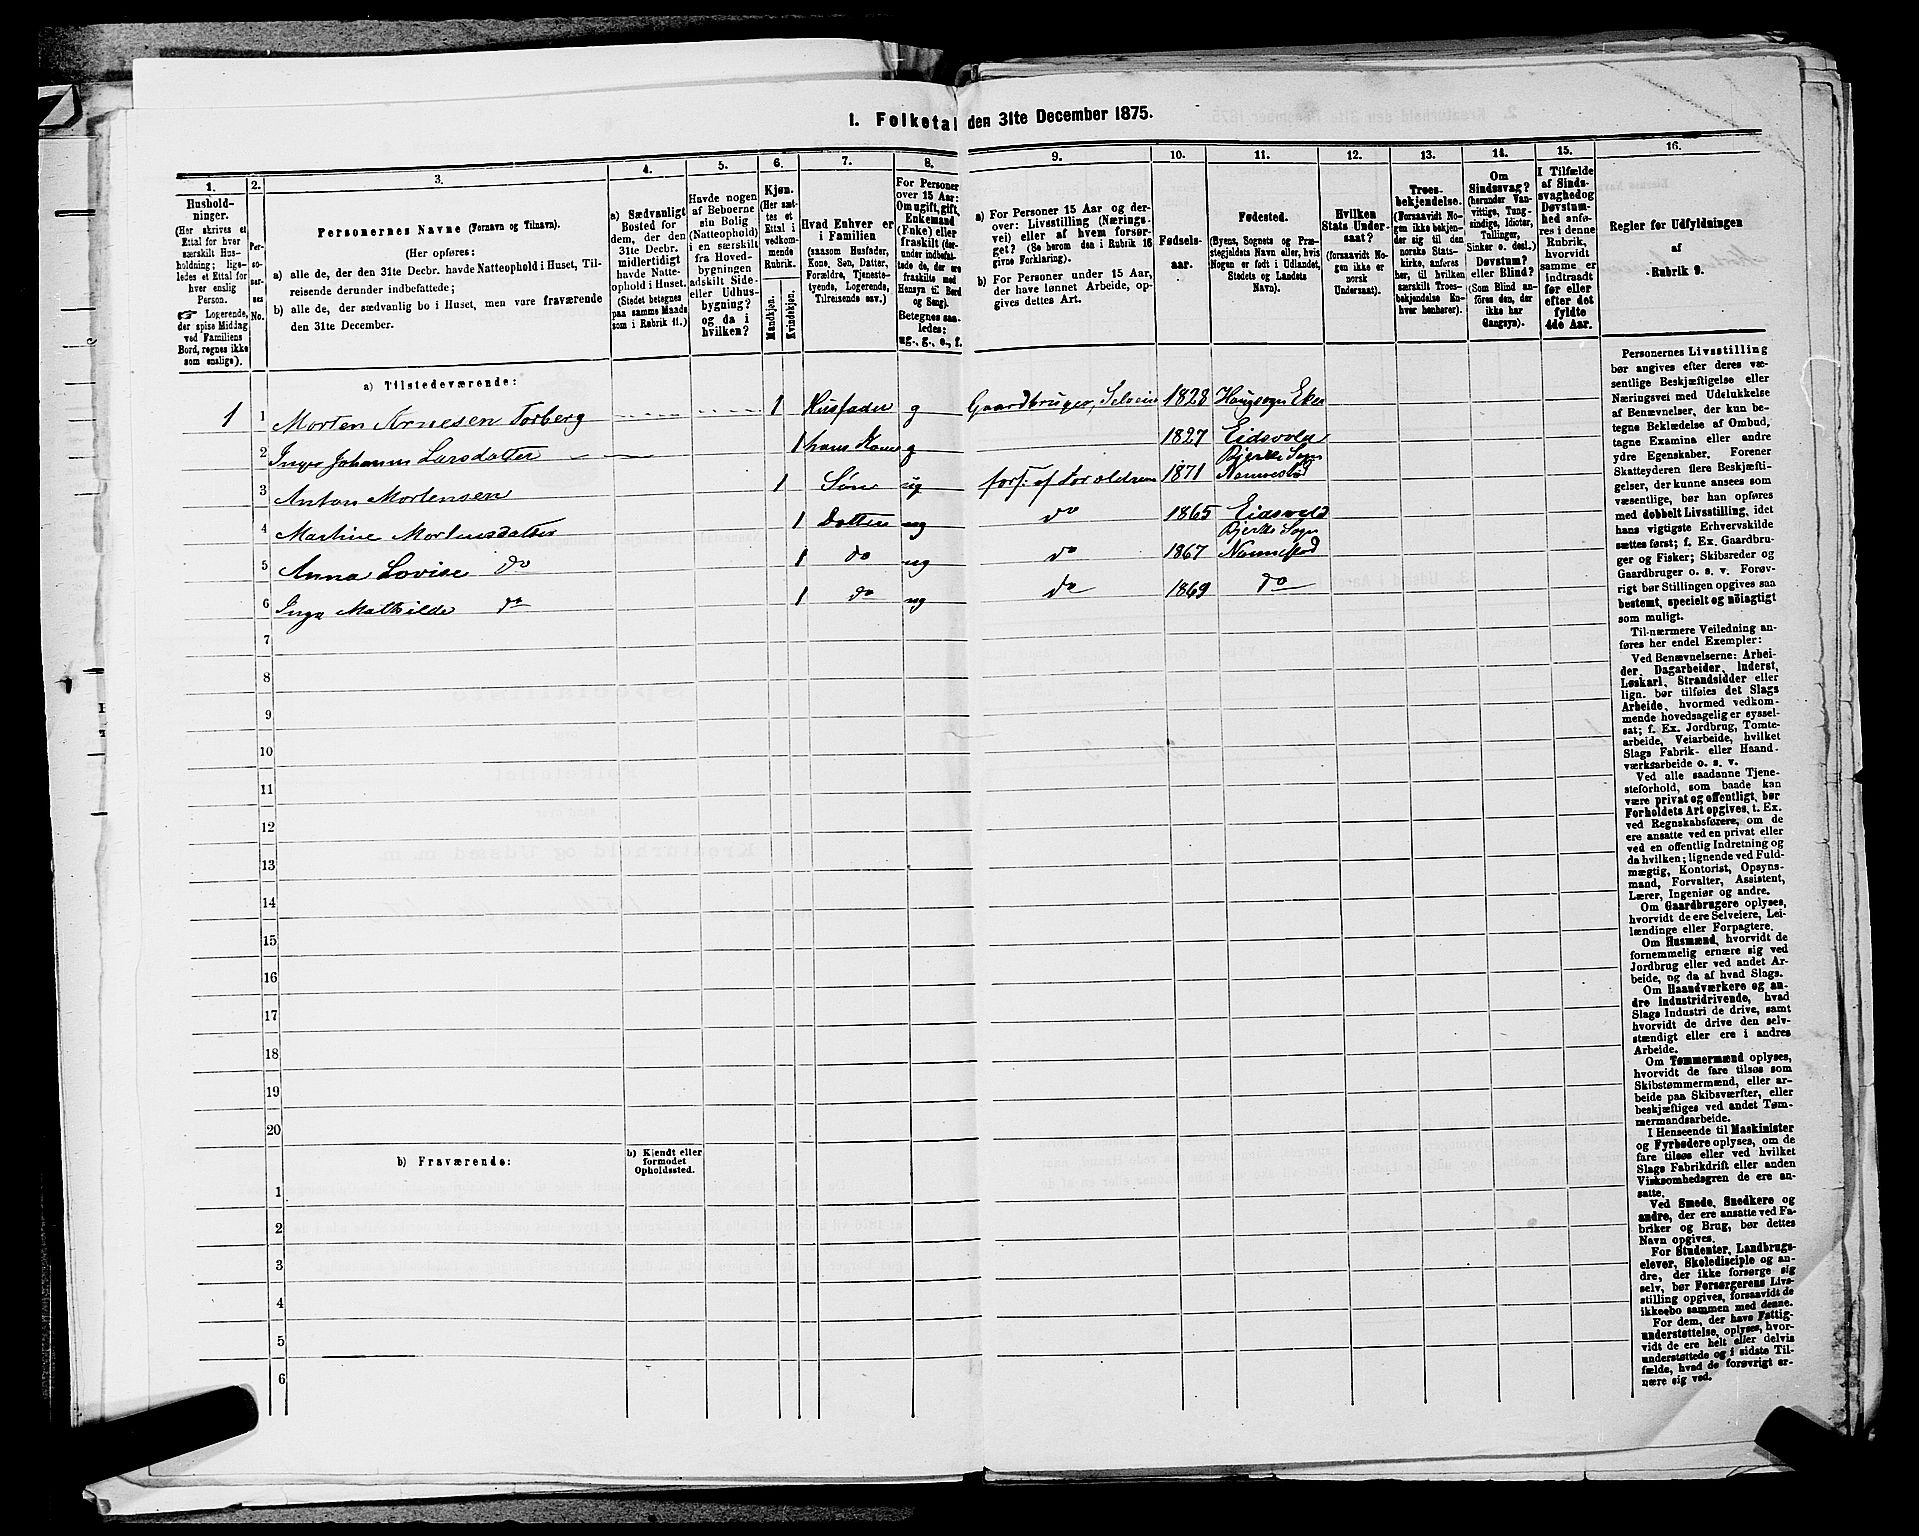 1. Folketal den 31te December 1875.
1.
2.
3.
4.
5.
6.
7.
8.
9.
10.
11.
12.
13.
14.
15.
16.
Hushold-
ninger.
(Her skrives et
Ettal for hver
særskilt Hus-
holdning; lige-
ledes et Ettal for
hver enslig
Person.
☞ Logerende,
der spise Middag
ved Familiens
Bord, regnes ikke
som enslige).
Per-
so-
ner-
nes
No.
Personernes Navne (Fornavn og Tilnavn).
(Her opføres:
a) alle de, der den 31te Decbr. havde Natteophold i Huset, Til-
reisende derunder indbefattede;
b) alle de, der sædvanlig bo i Huset, men vare fraværende
den 31te December.
a) Sædvanligt
Bosted for
dem, der den
31te Decbr.
midlertidigt
havde Natte-
ophold i Huset.
(Stedet betegnes
paa samme Maade
som i Rubrik 11.)
Havde nogen
af Beboerne
sin Bolig
(Natteophold)
i en særskilt
fra Hoved-
bygningen
adskilt Side-
eller Udhus-
bygning?
og da i
hvilken?
Kjøn.
(Her sæt-
tes et
Ettal i
vedkom-
mende
Rubrik.
Mandkjøn.
Kvindekjøn.
Hvad Enhver er
i Familien
(saasom Husfader,
Kone, Søn, Datter,
Forældre, Tjeneste-
tyende, Logerende,
Tilreisende osv.)
For Personer
over 15 Aar:
Om ugift, gift,
Enkemand
(Enke) eller
fraskilt (der-
under indbefat-
tede de, der ere
fraskilte med
Hensyn til Bord
og Seng).
Betegnes saa-
ledes:
ug., g., e., f.
a) For Personer 15 Aar og der-
over: Livsstilling (Nærings-
vei) eller af hvem forsør-
get? (Se herom den i Rubrik 16
givne Forklaring).
b) For Personer under 15 Aar,
der have lønnet Arbeide, op-
gives dettes Art.
Fødsels-
aar.
Fødested.
(Byens, Sognets og Præ-
stegjeldets Navn eller, hvis
Nogen er født i Udlandet,
Stedets og Landets
Navn).
Hvilken
Stats Under-
saat?
(forsaavidt No-
gen ikke er
norsk
Undersaat).
Troes-
bekjendelse.
(Forsaavidt No-
gen ikke bekjen-
der sig til den
norske Stats-
kirke, anføres
her, til hvilken
særskilt Troes-
bekjendelse En-
hver henhører).
Om
Sindssvag?
(herunder Van-
vittige, Tung-
sindige, Idioter,
Tullinger,
Sinker o. desl.)
Døvstum?
eller Blind?
(Som Blind an-
føres den, der
ikke har
Gangsyn).
I Tilfælde
af Sinds-
svaghed og
Døvstum-
hed anfø-
res i denne
Rubrik,
hvorvidt
samme er
indtraadt
før eller
efter det
fyldte
4de Aar.
Regler for Udfyldningen
af
Rubrik 9.
a) Tilstedeværende:
1 1 Morten Arnesen Torberg 1 Husfader g Gaardbruger, Selveier 1828 Hougsogn Eker
2 Inger Johanne Larsdatter 1 hans Kone g 1827 Eidsvold
3 Anton Mortensen 1 Søn ug fors: af Foraldrene 1871 Bjerke Sogn Nannestad
4 Martine Mortensdatter 1 Datter ug do 1865 Eidsvold
5 Anna Lovise do 1 do ug do 1867 Bjerke Sogn Nannestad
6 Inga Mathilde do 1 do ug do 1869 do
7
8
9
10
11
12
13
14
15
16
17
18
19
20
b) Fraværende:
b) Kjendt eller
formodet
Opholdssted.
1
2
3
4
5
6
Personernes Livsstilling
bør angives efter deres væ-
sentlige Beskjæftigelse eller
Næringsvei med Udelukkelse
af Benævnelser, der kun be-
tegne Beklædelse af Ombud,
tagne Examina eller andre
ydre Egenskaber. Forener
Skatteyderen flere Beskjæfti-
gelser, der kunne ansees som
væsentlige, bør han opføres
med dobbelt Livsstilling, idet
hans vigtigste Erhvervskilde
sættes først; f. Ex. Gaardbru-
ger og Fisker; Skibsreder og
Gaardbruger o. s. v. Forøv-
rigt bør Stillingen opgives saa
bestemt, specielt og nøiagtigt
som muligt.
Til nærmere Veiledning an-
føres her endel Exempler:
Ved Benævnelserne: Arbei-
der, Dagarbeider, Inderst,
Løskarl, Strandsidder eller
lign. bør tilføies det Slags
Arbeide, hvormed vedkom-
mende hovedsagelig er syssel-
sat; f. Ex. Jordbrug, Tomte-
arbeide, Veiarbeide, hvilket
Slags Fabrik- eller Haand-
værksarbeide o. s. v.
Ved alle saadanne Tjene-
steforhold, som baade kan
være privat og offentligt, bør
Forholdets Art opgives, t. Ex.
ved Regnskabsførere, om de
ere ansatte ved en privat eller
ved en offentlig Indretning og
da hvilken; lignende ved Fuld-
mægtig, Kontorist, Opsyns-
mand, Forvalter, Assistent,
Lærer, Ingeniør og andre.
Om Gaardbrugere oplyses,
hvorvidt de ere Selveiere, Lei-
lændinge eller Forpagtere.
Om Husmænd, hvorvidt de
fornemmelig ernære sig ved
Jordbrug eller ved andet Ar-
beide, og da af hvad Slags.
Om Haandværkere og an-
dre Industridrivende, hvad
Slags Industri de drive, samt
hvorvidt de drive den selv-
stændigt eller ere i andres
Arbeide.
Om Tømmermænd oplyses,
hvorvidt de fare tilsøs som
Skibstømmermænd, eller ar-
beide paa Skibsværfter, eller
beskjæftiges ved andet Tøm-
mermandsarbeide.
I Henseende til Maskinister
og Fyrbødere oplyses, om de
fare tilsøs eller ved hvilket
Slags Fabrikdrift eller anden
Virksomhedsgren de ere an-
satte.
Ved Smede, Snedkere og
andre, der ere ansatte ved Fa-
briker og Brug, bør dettes
Navn opgives.
For Studenter, Landbrugs-
elever, Skoledisciple og an-
dre, der ikke forsørge sig
selv, bør Forsørgerens Livs-
stilling opgives, forsaavidt de
ikke bo sammen med denne.
For dem, der have Fattig-
understøttelse, oplyses, hvor-
vidt de ere helt eller delvis
understøttede og i sidste Til-
fælde, hvad de forøvrigt er-
nære sig ved.